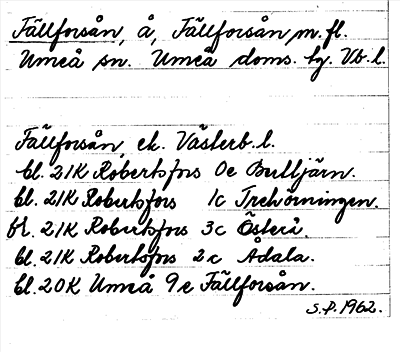 Fällforsån, å, Fällforsån m.fl.
Umeå sn. Umeå doms. lg. Vb.l.
Fällforsån, ek. Västerb.l.
bl. 21K Robertsfors 0e Bulltjärn.
bl. 21K Robertsfors 1c Trehörningen.
bl. 21K Robertsfors 3c Österå.
bl. 21K Robertsfors 2c Ådala.
bl. 20K Umeå 9e Fällforsån.
S.P. 1962.